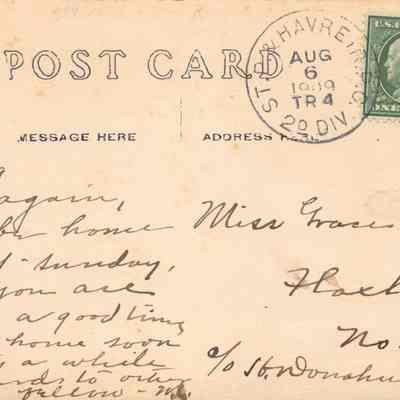 POST CARD
MESSAGE HERE
ADDRESS HERE
ST.P. & HAVRE
AUG
6
1909
TR 4
2D DIV.
again,
home
sunday,
you are
a good time
home soon
a while
to other
fellow
Miss Grace
No.
c/o H. Donahu